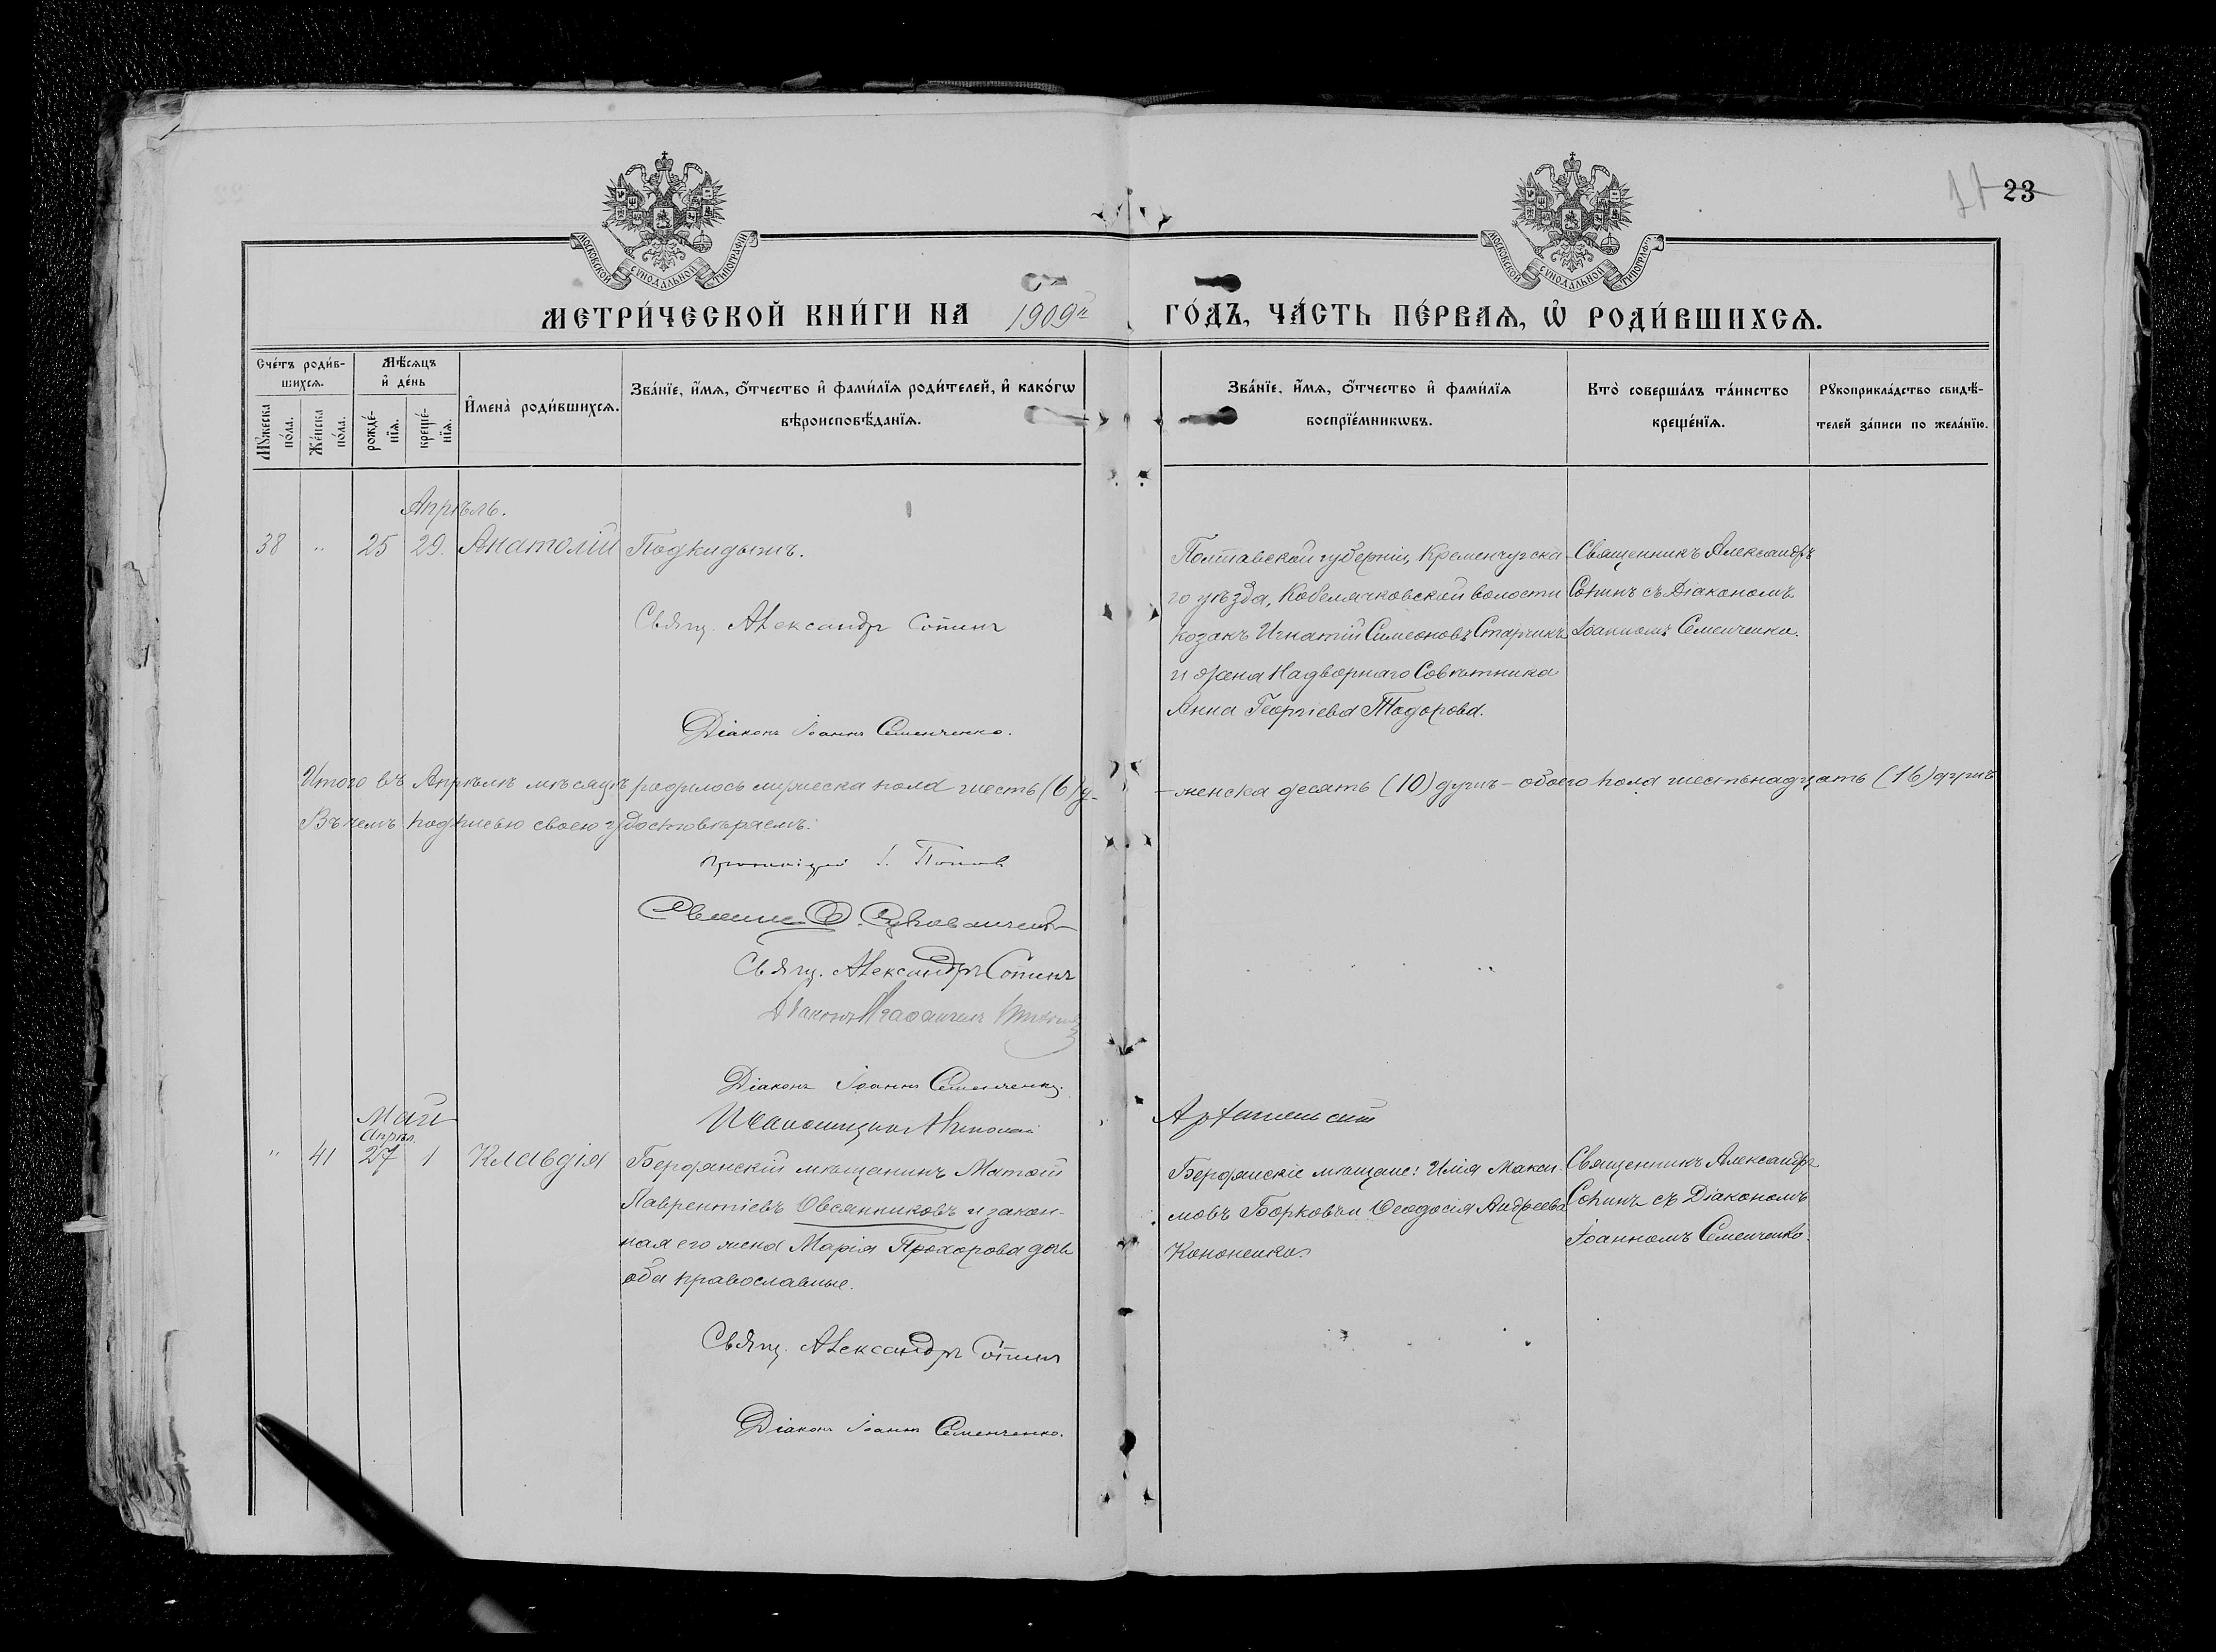 23
МОСКОВСКОЙ СУНОДАЛЬНОЙ ТИПОГРАФІИ
МОСКОВСКОЙ СУНОДАЛЬНОЙ ТИПОГРАФІИ
МЕТРИ́ЧЕСКОЙ КНИ́ГИ НА 1909й ГО́ДЪ, ЧА́СТЬ ПЕ́РВАѦ, Ѡ҆ РОДИ́ВШИХСѦ.
Сче́тъ роди́в-
шихсѧ.
Мѣ́сѧцъ
и҆ де́нь
Мꙋ́жеска по́ла.
Же́нска по́ла.
рожде́-нїѧ.
креще́-нїѧ.
И҆мена̀ роди́вшихсѧ.
Зва́нїе, и҆́мѧ, ѻ҆́тчество и҆ фами́лїѧ роди́телей, и҆ како́гѡ
вѣроисповѣ́данїѧ.
Зва́нїе, и҆́мѧ, ѻ҆́тчество и҆ фами́лїѧ
воспрїе́мникѡвъ.
Кто̀ соверша́лъ та́инство
креще́нїѧ.
Рꙋкоприкла́дство свидѣ́-
телей за́писи по жела́нїю.
Апрѣль.
38 " 25 29. Анатолій Подкидышъ.
Свящ. Александръ Сопинъ
Діаконъ Іоаннъ Семенченко.
Полтавской губерніи, Кременчугска-
го уѣзда, Кобелячковской волости
козакъ Игнатій Симеоновъ Старчикъ
и жена Надворнаго Совѣтника
Анна Георгіева Тодорова.
Священникъ Александръ
Сопинъ съ Діакономъ
Іоанномъ Семенченко.
Итого въ Апрѣлѣ мѣсяцѣ родилось мужеска пола шесть (6) д- - женска десять (10) душъ - обоего пола шестьнадцать (16) душъ
Въ чемъ подписью своею удостовѣряемъ:
Протоіерей І. Попов
Свящ. Александръ Сопинъ
Діаконъ
Діаконъ Іоаннъ Семенченко.
Псаломщикъ Николай
Май
Апрѣл.
" 41 27 1 Клавдія
Бердянскій мѣщанинъ Матѳій
Лаврентіевъ Овсянниковъ и закон-
ная его жена Марія Прохорова
оба православные.
Свящ. Александръ Сопинъ
Діаконъ Іоаннъ Семенченко.
Бердянскіе мѣщане: Илія Макси-
мовъ Борковъ и Ѳеодосія Андреева
Кононенко.
Священникъ Александръ
Сопинъ съ Діакономъ
Іоанномъ Семенченко.